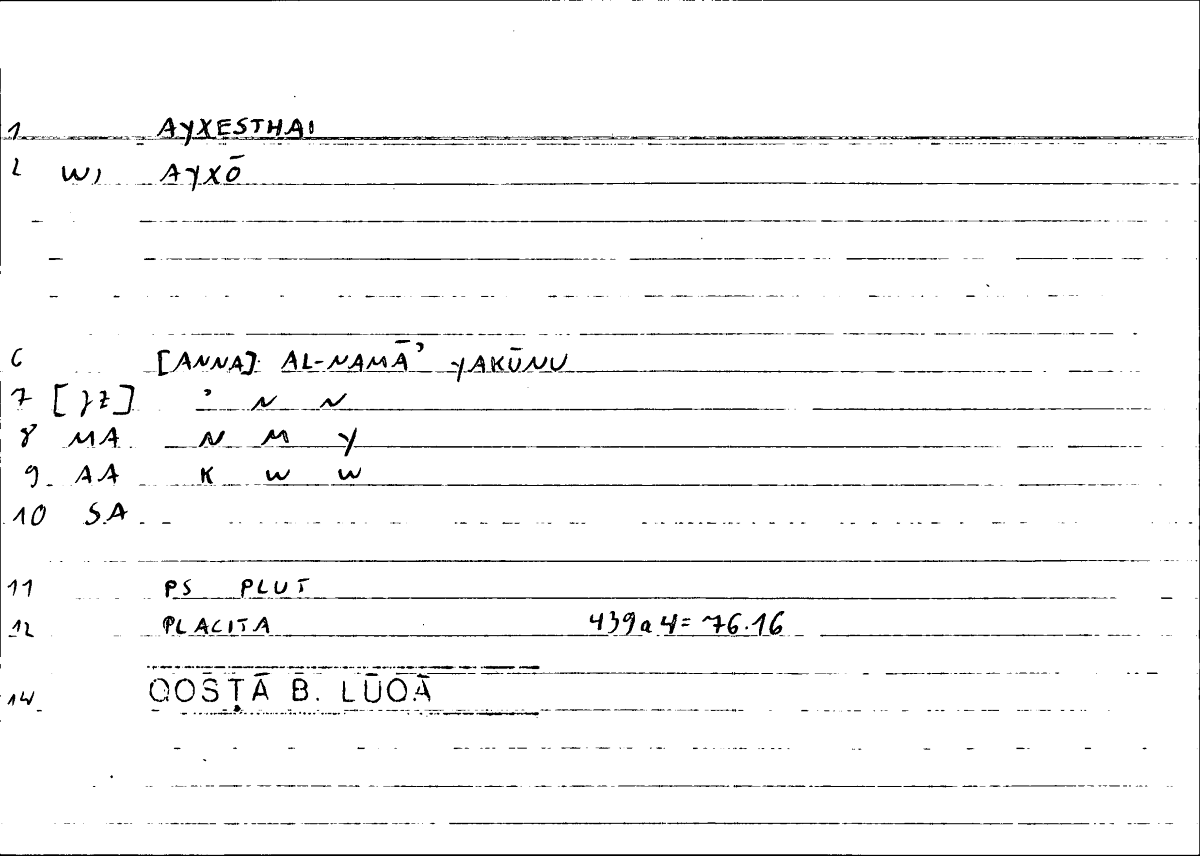 1 AYXESTHAI
2 W) AYXŌ
6 [ANNA] AL-NAMĀʾ YAKŪNU
7 [ZZ] ʾ N N
8 MA N M Y
9 AA K W W
10 SA
11 PS PLUT
12 PLACITA 439a4=76.16
14 QOSṬĀ B. LŪQĀ